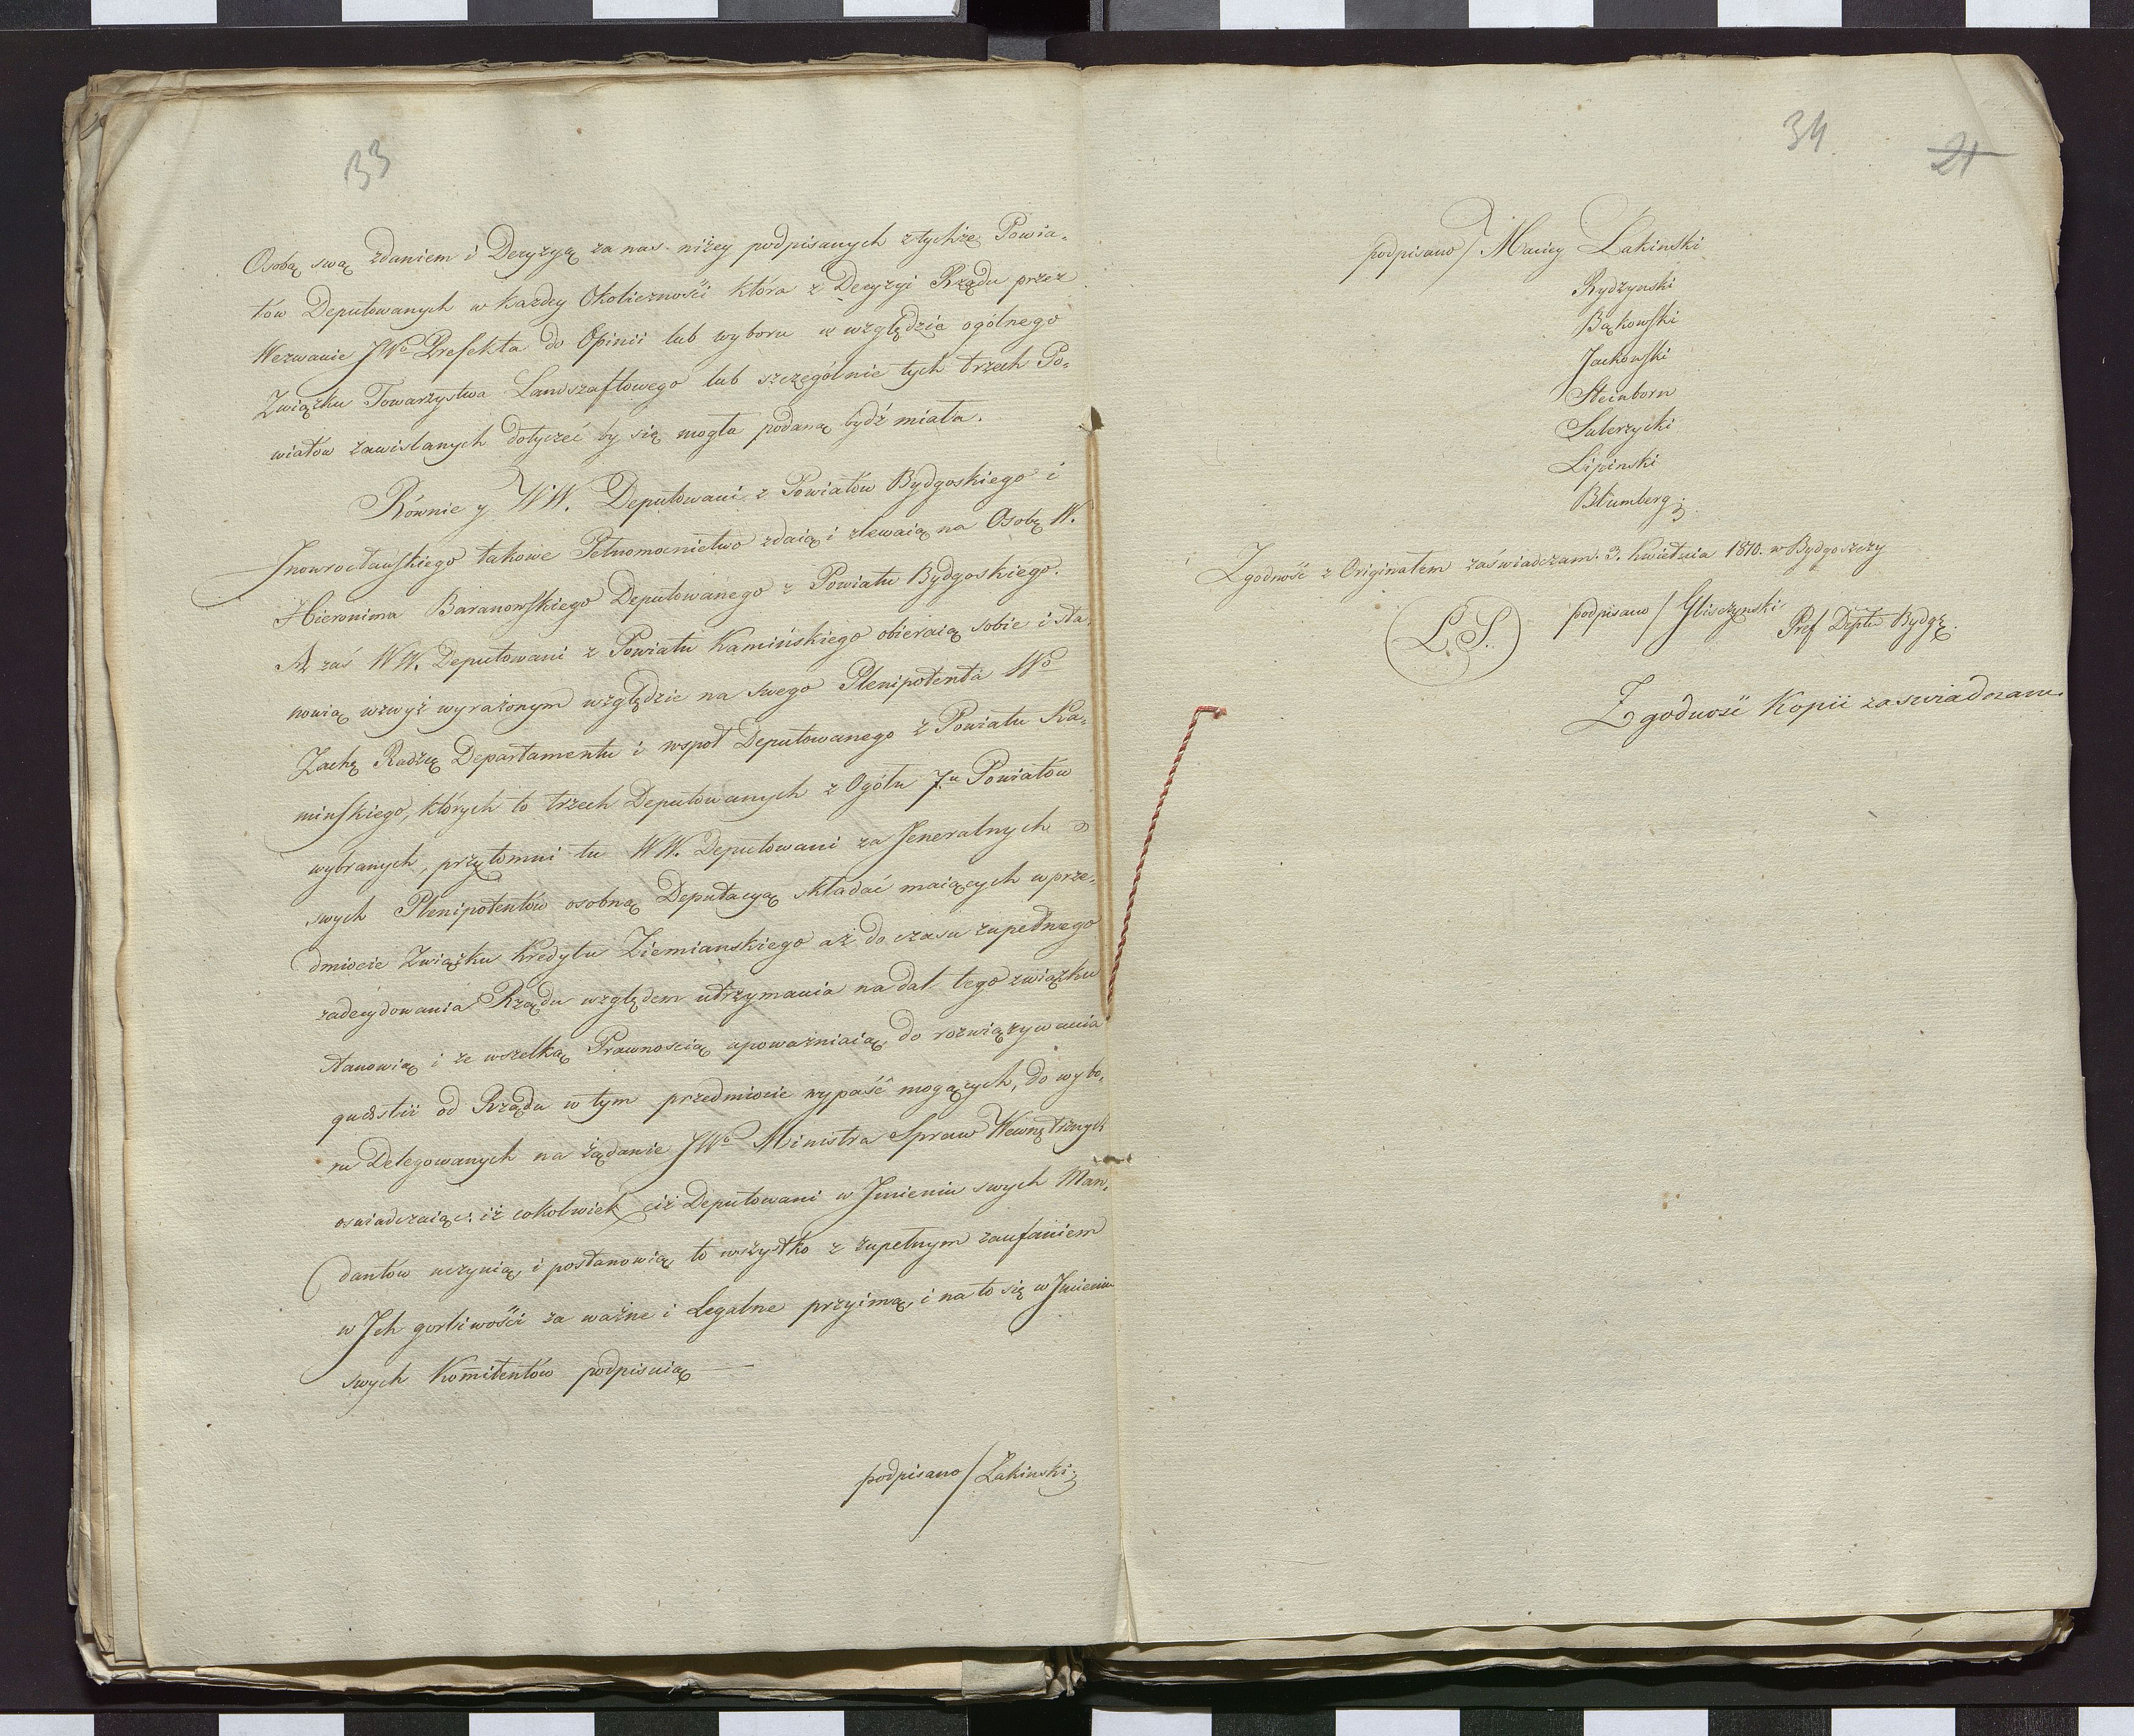 33
Osobą swą zdaniem i Decyzyą za nas niżey podpisanych z tychże Powia-
tów Deputowanych w każdey Okoliczności która z Decyzyi Rządu przez
Wezwanie JWo Prefekta do Opinii lub wyboru w względzie ogólnego
Związku Towarzystwa Landszaftowego lub szczególnie tych trzech Po-
wiatów zawislanych dotyczeć by się mogła podaną bydź miała.
Równie y WW. Deputowani z Powiatów Bydgoskiego i
Inowrocławskiego takowe Pełnomocnictwo zdaią i zlewaią na Osobę W.
Hieronima Baranowskiego Deputowanego z Powiatu Bydgoskiego.
A zaś WW. Deputowani z Powiatu Kamińskiego obieraią sobie i sta-
nowią wzwyż wyrażonym względzie na swego Plenipotenta Wo
Zachę Radzcę Departamentu i wspoł Deputowanego z Powiatu Ka-
minskiego, których to trzech Deputowanych z Ogółu 7u Powiatów
wybranych, przytomni tu WW. Deputowani za Jeneralnych
swych Plenipotentów osobną Deputacyą składać maiących w prze-
dmiocie Związku Kredytu Ziemianskiego aż do czasu zupełnego
zadecydowania Rządu względem utrzymania nadal tego związku
stanowią i ze wszelką Prawnoscią upoważniaią, do rozwiązywania
quæstii od Rządu w tym przedmiocie wypaść mogących, do wybo-
ru Delegowanych na żądanie JWo Ministra Spraw Wewnętrznych
oswiadczaiąc: iż cokolwiek ciż Deputowani w Jmieniu swych Man-
dantów uczynią i postanowią to wszystko z zupełnym zaufaniem
w Jch gorliwości za ważne i Legalne przyimą, i na to się w Jmieniu
swych Komitentów podpisuią
podpisano / Łakinski
34
21
podpisano / Maciey Łakinski
Rydzynski
Bąkowski
Jackowski
Steinborn
Sulerzycki
Lipinski
Blumberg
Zgodność z Originałem zaświadczam. 3. Kwietnia 1810. w Bydgoszczy
L.S.
podpisano / Gliszczynski
Pref Deptu Bydg.
Zgodność Kopii zaswiadczam.